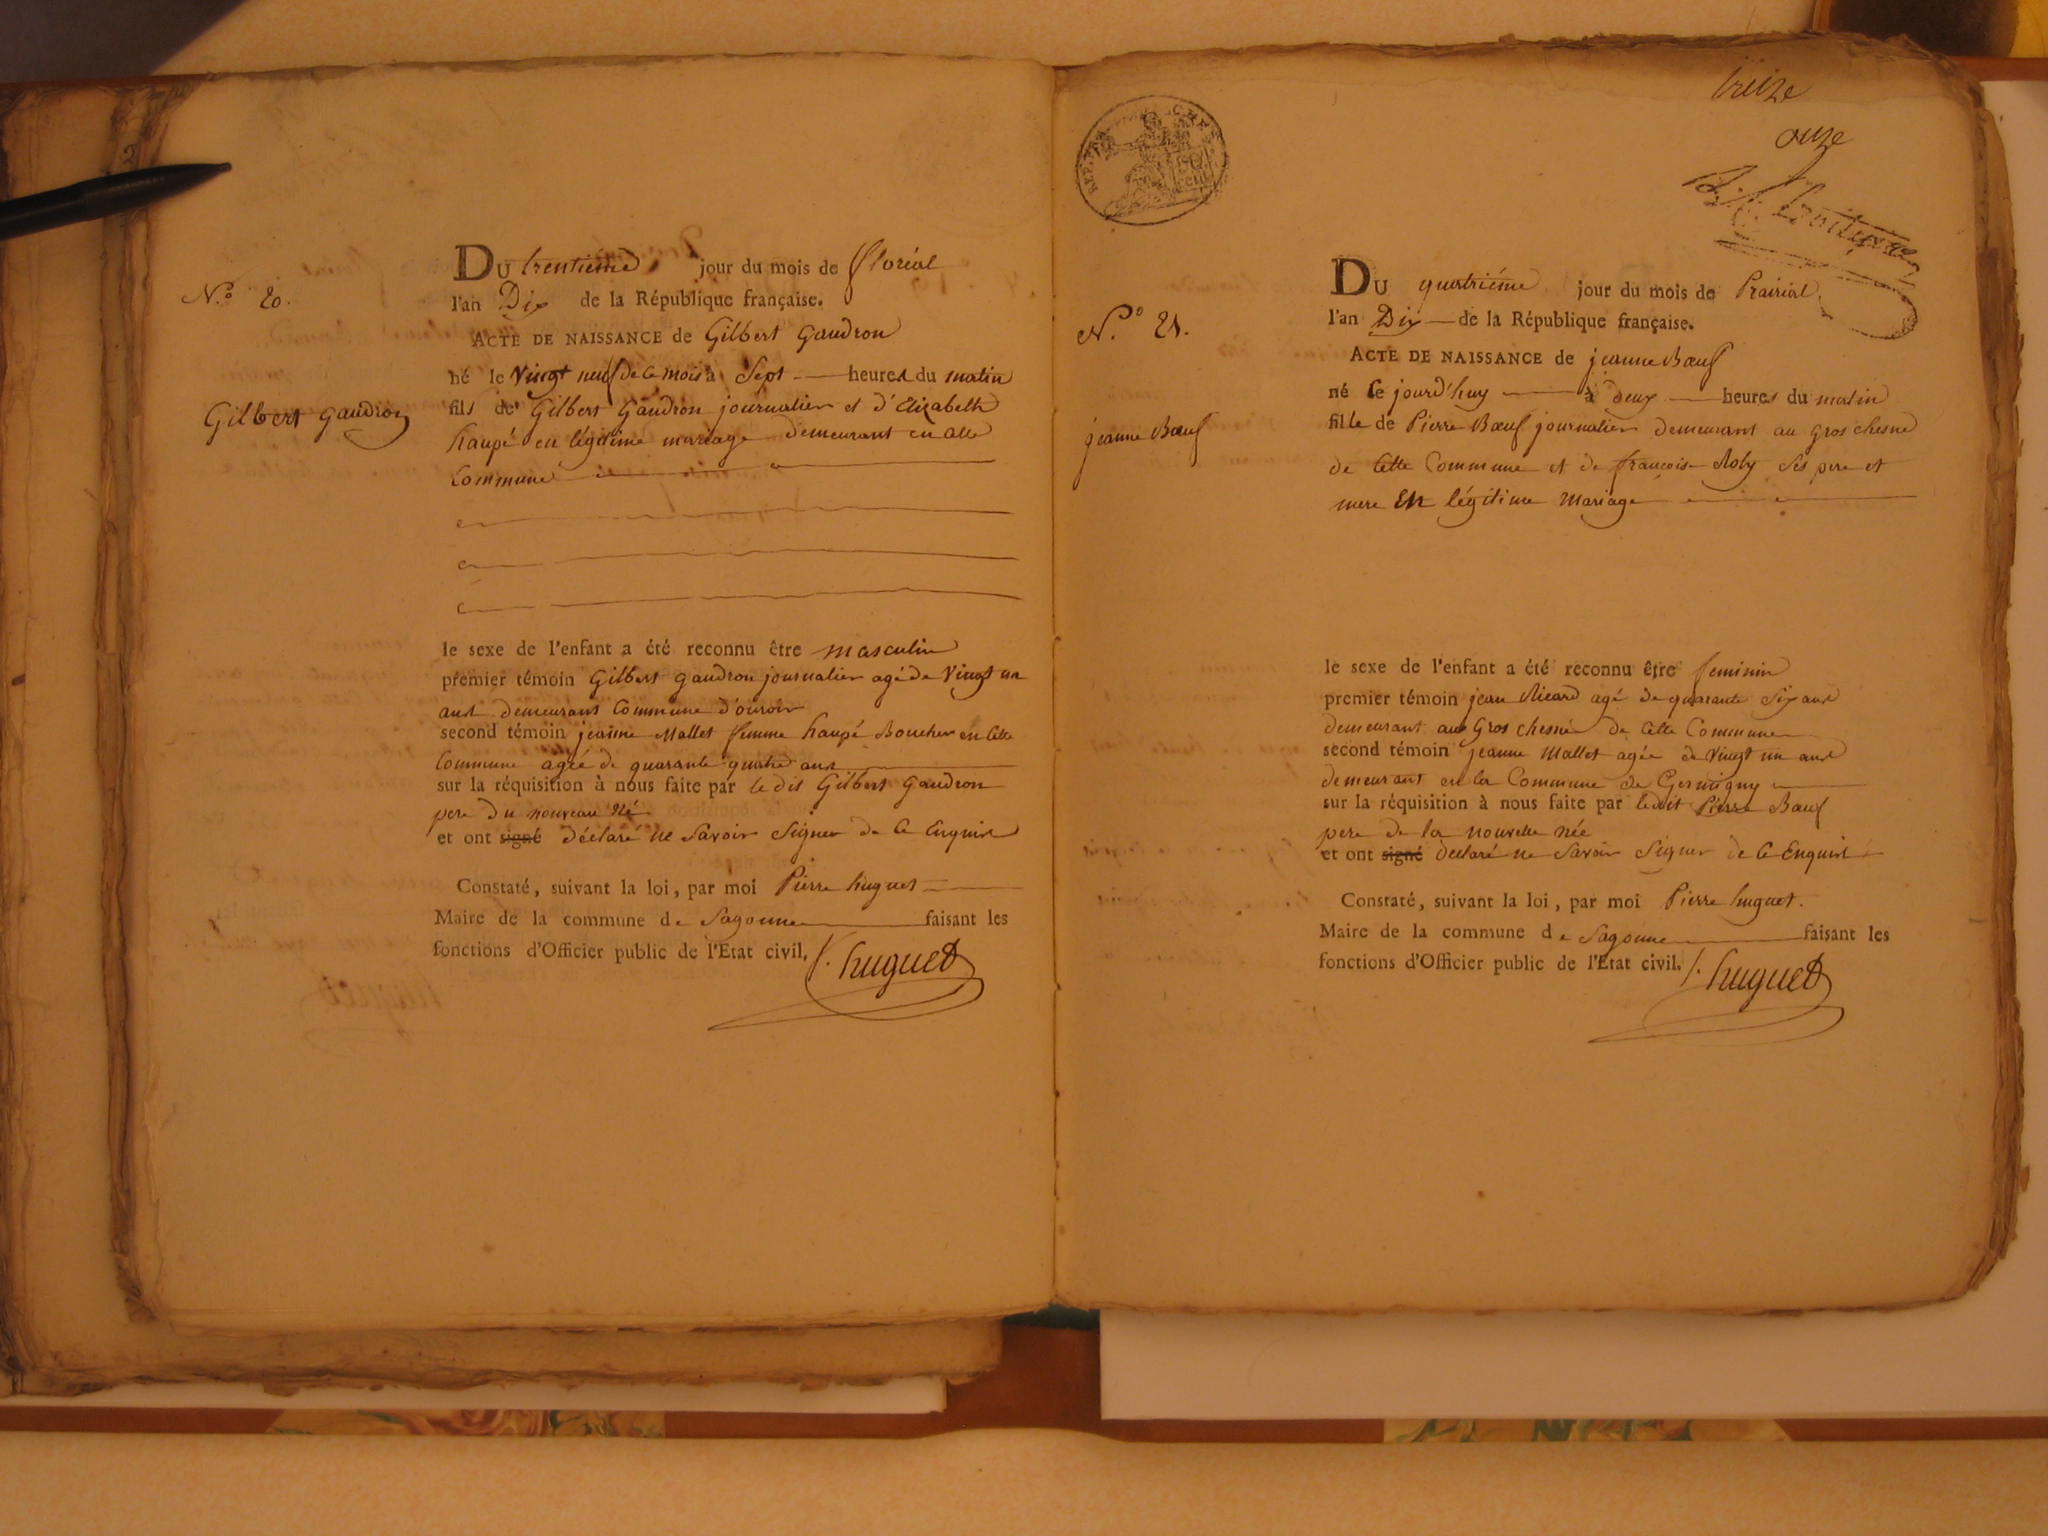 N.º 20.
Gilbert gaudron
DU trentiéme jour du mois de floréal
l'an Dix de la République française.
ACTE DE NAISSANCE de Gilbert gaudron
né le Vingt neuf de ce mois à Sept heures du matin
fils de Gilbert gaudron journalier et d'Elizabeth
haupé en légitime mariage demeurant en cette
Commune
le sexe de l'enfant a été reconnu être masculin
premier témoin Gilbert gaudron journalier agé de Vingt un
ans demeurant Commune d'ouroir
second témoin jeanne Mallet femme haupé Boucher en Cette
Commune agée de quarante quatre ans
sur la réquisition à nous faite par le dit Gilbert gaudron
pere du nouveau né
et ont signé déclaré ne Savoir Signer de ce Enquis
Constaté, suivant la loi, par moi Pierre huguet
Maire de la commune de Sagonne faisant les
fonctions d'Officier public de l'Etat civil. P. huguet
treize
onze
REP. FRA.
N.º 21.
jeanne Bœuf
DU quatriéme jour du mois de Prairial
l'an Dix de la République française.
ACTE DE NAISSANCE de jeanne Bœuf
né ce jourd'huy à deux heures du matin
fille de Pierre Bœuf journalier demeurant au gros chesne
de Cette Commune et de francoise Roby Ses pere et
mere En légitime mariage
le sexe de l'enfant a été reconnu être feminin
premier témoin jean Ricard agé de quarante Six ans
demeurant au Gros chesne de Cette Commune
second témoin jeanne Mallet agée de Vingt un ans
demeurant en la Commune de Germigny
sur la réquisition à nous faite par ledit Pierre Bœuf
pere de la nouvelle née
et ont signé declaré ne Savoir Signer de ce Enquis
Constaté, suivant la loi, par moi Pierre huguet.
Maire de la commune de Sagonne faisant les
fonctions d'Officier public de l'Etat civil. P. huguet